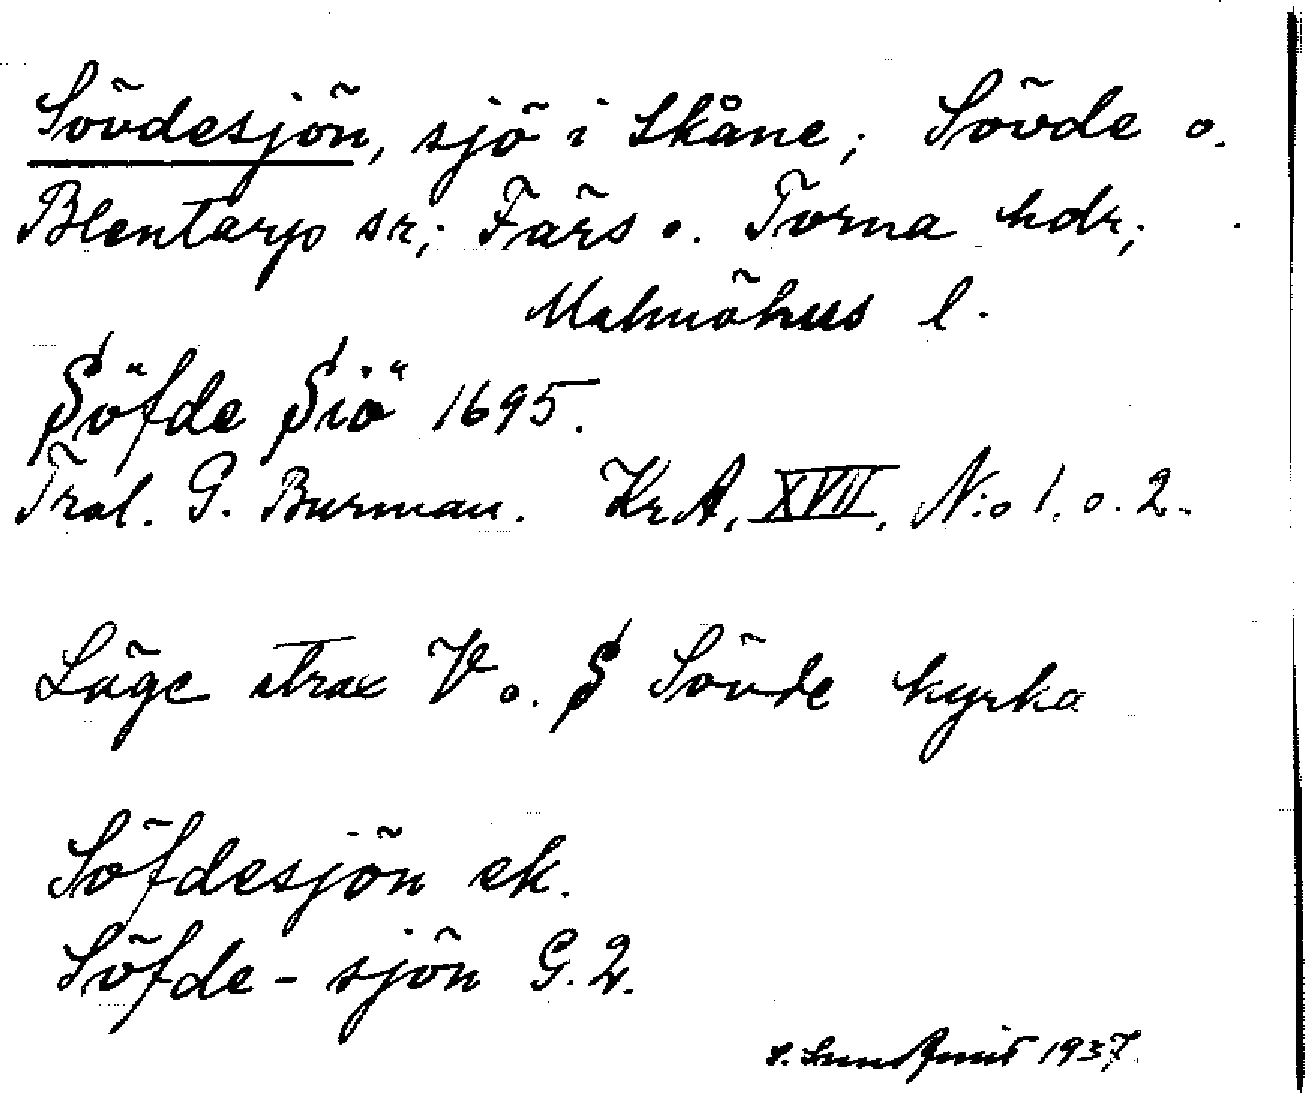 Sövdesjön, sjö i Skåne; Sövde o.
Blentarp sr; Färs o. Torna hdr;
Malmöhus l.
Söfde Siö 1695.
Tral. G. Burman. Kr.A. XVII, N:o 1. o. 2.
Läge strax V o. S Sövde kyrka
Söfdesjön ek.
Söfde - sjön G. 2.
Lundquist 1937